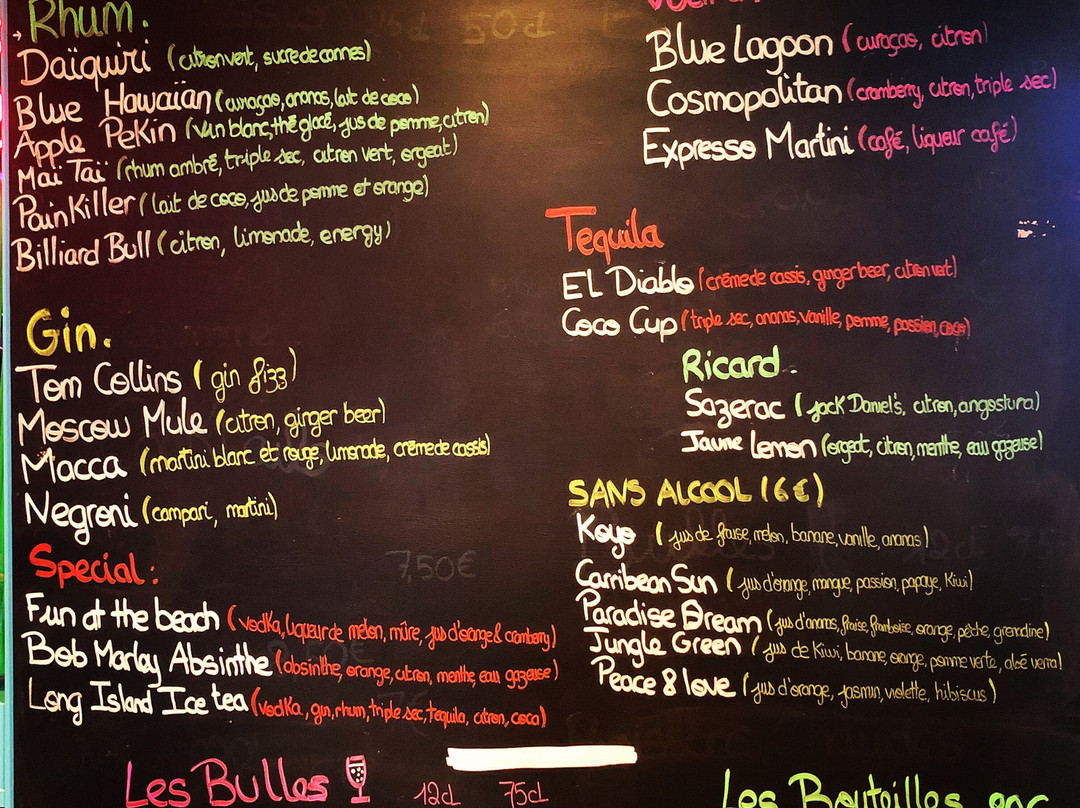 Rhum.
Daïquiri (citron vert, sucre de cannes)
Blue Hawaïan (curaçao, ananas, lait de coco)
Apple Pekin (vin blanc, thé glacé, jus de pomme, citron)
Maï Taï (rhum ambré, triple sec, citron vert, orgeat)
Pain Killer (lait de coco, jus de pomme et orange)
Billiard Bull (citron, limonade, energy)
Gin.
Tom Collins (gin fizz)
Moscow Mule (citron, ginger beer)
Macca (martini blanc et rouge, limonade, crème de cassis)
Negroni (campari, martini)
7,50€
Special:
Fun at the beach (vodka, liqueur de melon, mûre, jus d'orange & cranberry)
Bob Marlay Absinthe (absinthe, orange, citron, menthe, eau gazeuse)
Long Island Ice tea (vodka, gin, rhum, triple sec, tequila, citron, coca)
Les Bulles
12cl 75cl
Blue Lagoon (curaçao, citron)
Cosmopolitan (cramberry, citron, triple sec)
Expresso Martini (café, liqueur café)
Tequila
EL Diablo (crème de cassis, ginger beer, citron vert)
Coco Cup (triple sec, ananas, vanille, pomme, passion, coco)
Ricard.
Sazerac (jack Daniel's, citron, angostura)
Jaune Lemon (orgeat, citron, menthe, eau gazeuse)
SANS ALCOOL (6€)
Koyo (jus de fraise, melon, banane, vanille, ananas)
Carribean Sun (jus d'orange, mangue, passion, papaye, Kiwi)
Paradise Dream (jus d'ananas, fraise, framboise, orange, pêche, grenadine)
Jungle Green (jus de Kiwi, banane, orange, pomme verte, aloé verra)
Peace & love (jus d'orange, jasmin, violette, hibiscus)
Les Bouteilles